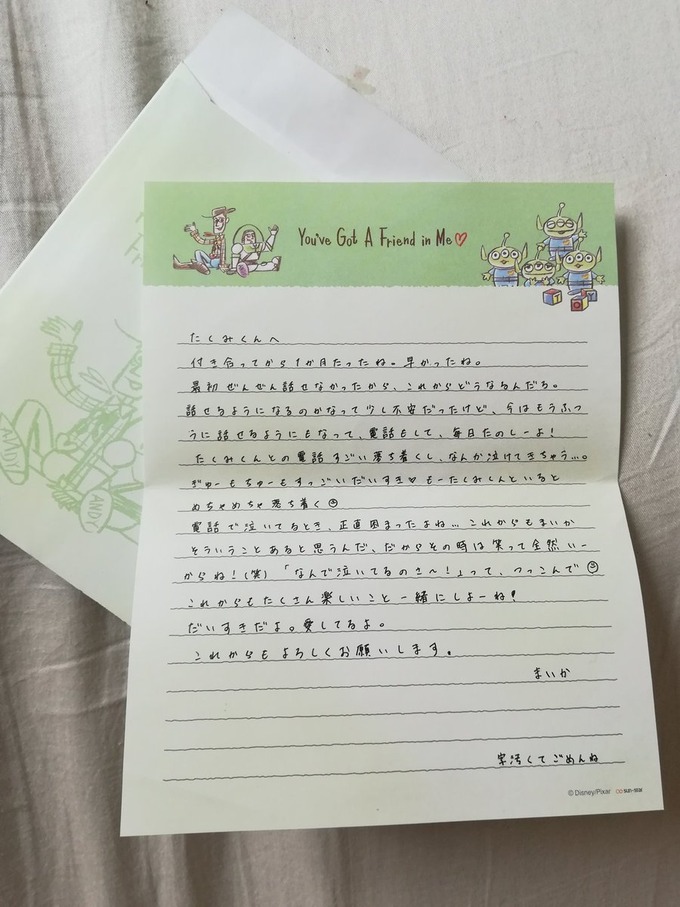 You've Got A Friend in Me♡
TOY
たくみくんへ
付き合ってから1か月たったね。早かったね。
最初ぜんぜん話せなかったから、これからどうなるんだろ。
話せるようになるのかなって少し不安だったけど、今はもうふつ
うに話せるようにもなって、電話もして、毎日たのしーよ!
たくみくんとの電話すごい落ち着くし、なんか泣けてきちゃう…。
ぎゅーもちゅーもすっごいだいすき♡もーたくみくんといると
めちゃめちゃ落ち着く☺
電話で泣いてるとき、正直困まったよね… これからもまいか
そういうことあると思うんだ、だからその時は笑って全然いー
からね!(笑)「なんで泣いてるのさ~!」って、つっこんで☺
これからもたくさん楽しいこと一緒にしよーね!
だいすきだよ。愛してるよ。
これからもよろしくお願いします。
まいか
字汚くてごめんね
© Disney/Pixar SUN-STAR
ANDY